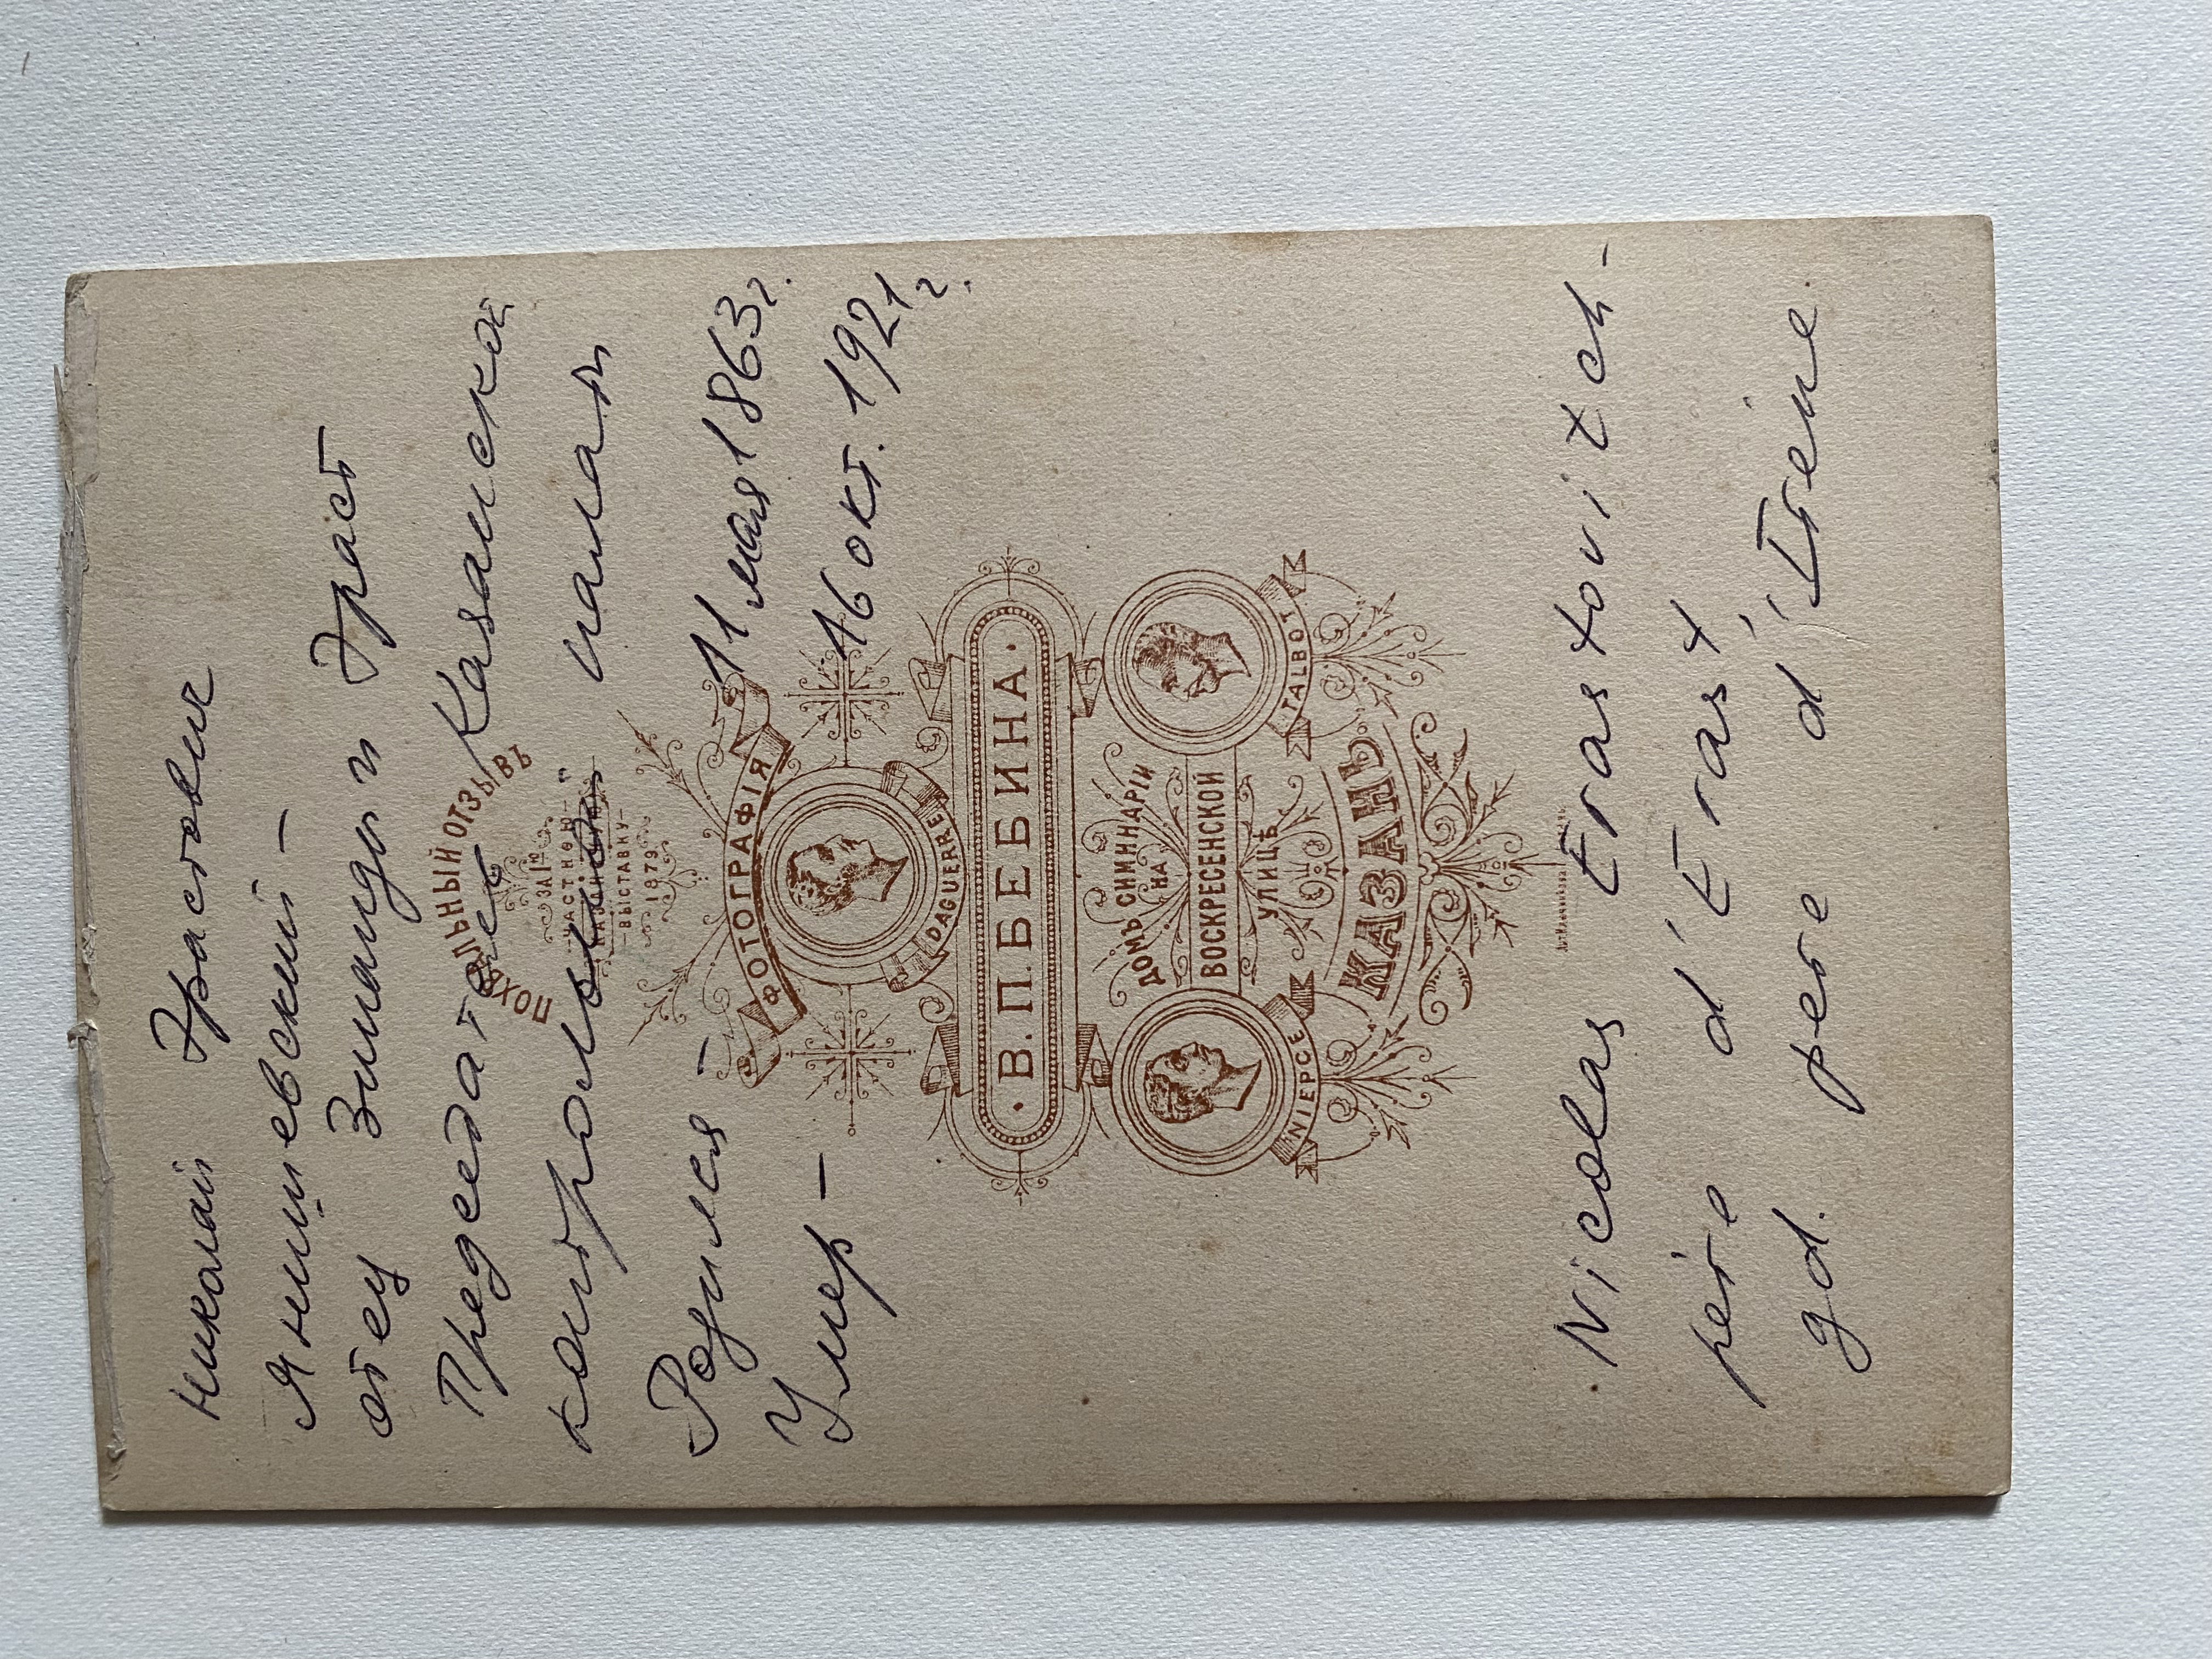 Николай Эрастович
Янишевский –
отец Зинаиды и Эраст
Председател Казанской
контрольной палат
Родился – 11 мая 1863 г.
Умер – 16 окт. 1921 г.
ПОХВАЛЬНЫЙ ОТЗЫВЪ
ЗА
ЧАСТНОЮ
ВЫСТАВКУ
1879
ФОТОГРАФІЯ
DAGUERRE
В.П.БЕБИНА.
ДОМЪ СИМИНАРІИ
НА
ВОСКРЕСЕНСКОЙ
УЛИЦѢ
NIEPCE
TALBOT
КАЗАНЬ.
Nicolas Erastovitch -
père d'Erast,
gd. père d'Irène.